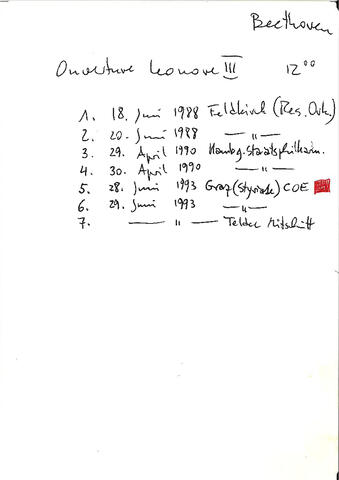 Beethoven
Ouverture Leonore III 12⁰⁰
1. 18. Juni 1988 Feldkirch (Res. Ork.)
2. 20. Juni 1988 — " —
3. 29. April 1990 Hambg. Staatsphilharm.
4. 30. April 1990 — " —
5. 28. Juni 1993 Graz (Styriarte) COE
6. 29. Juni 1993 — " —
7. — " — Teldec Mitschnitt